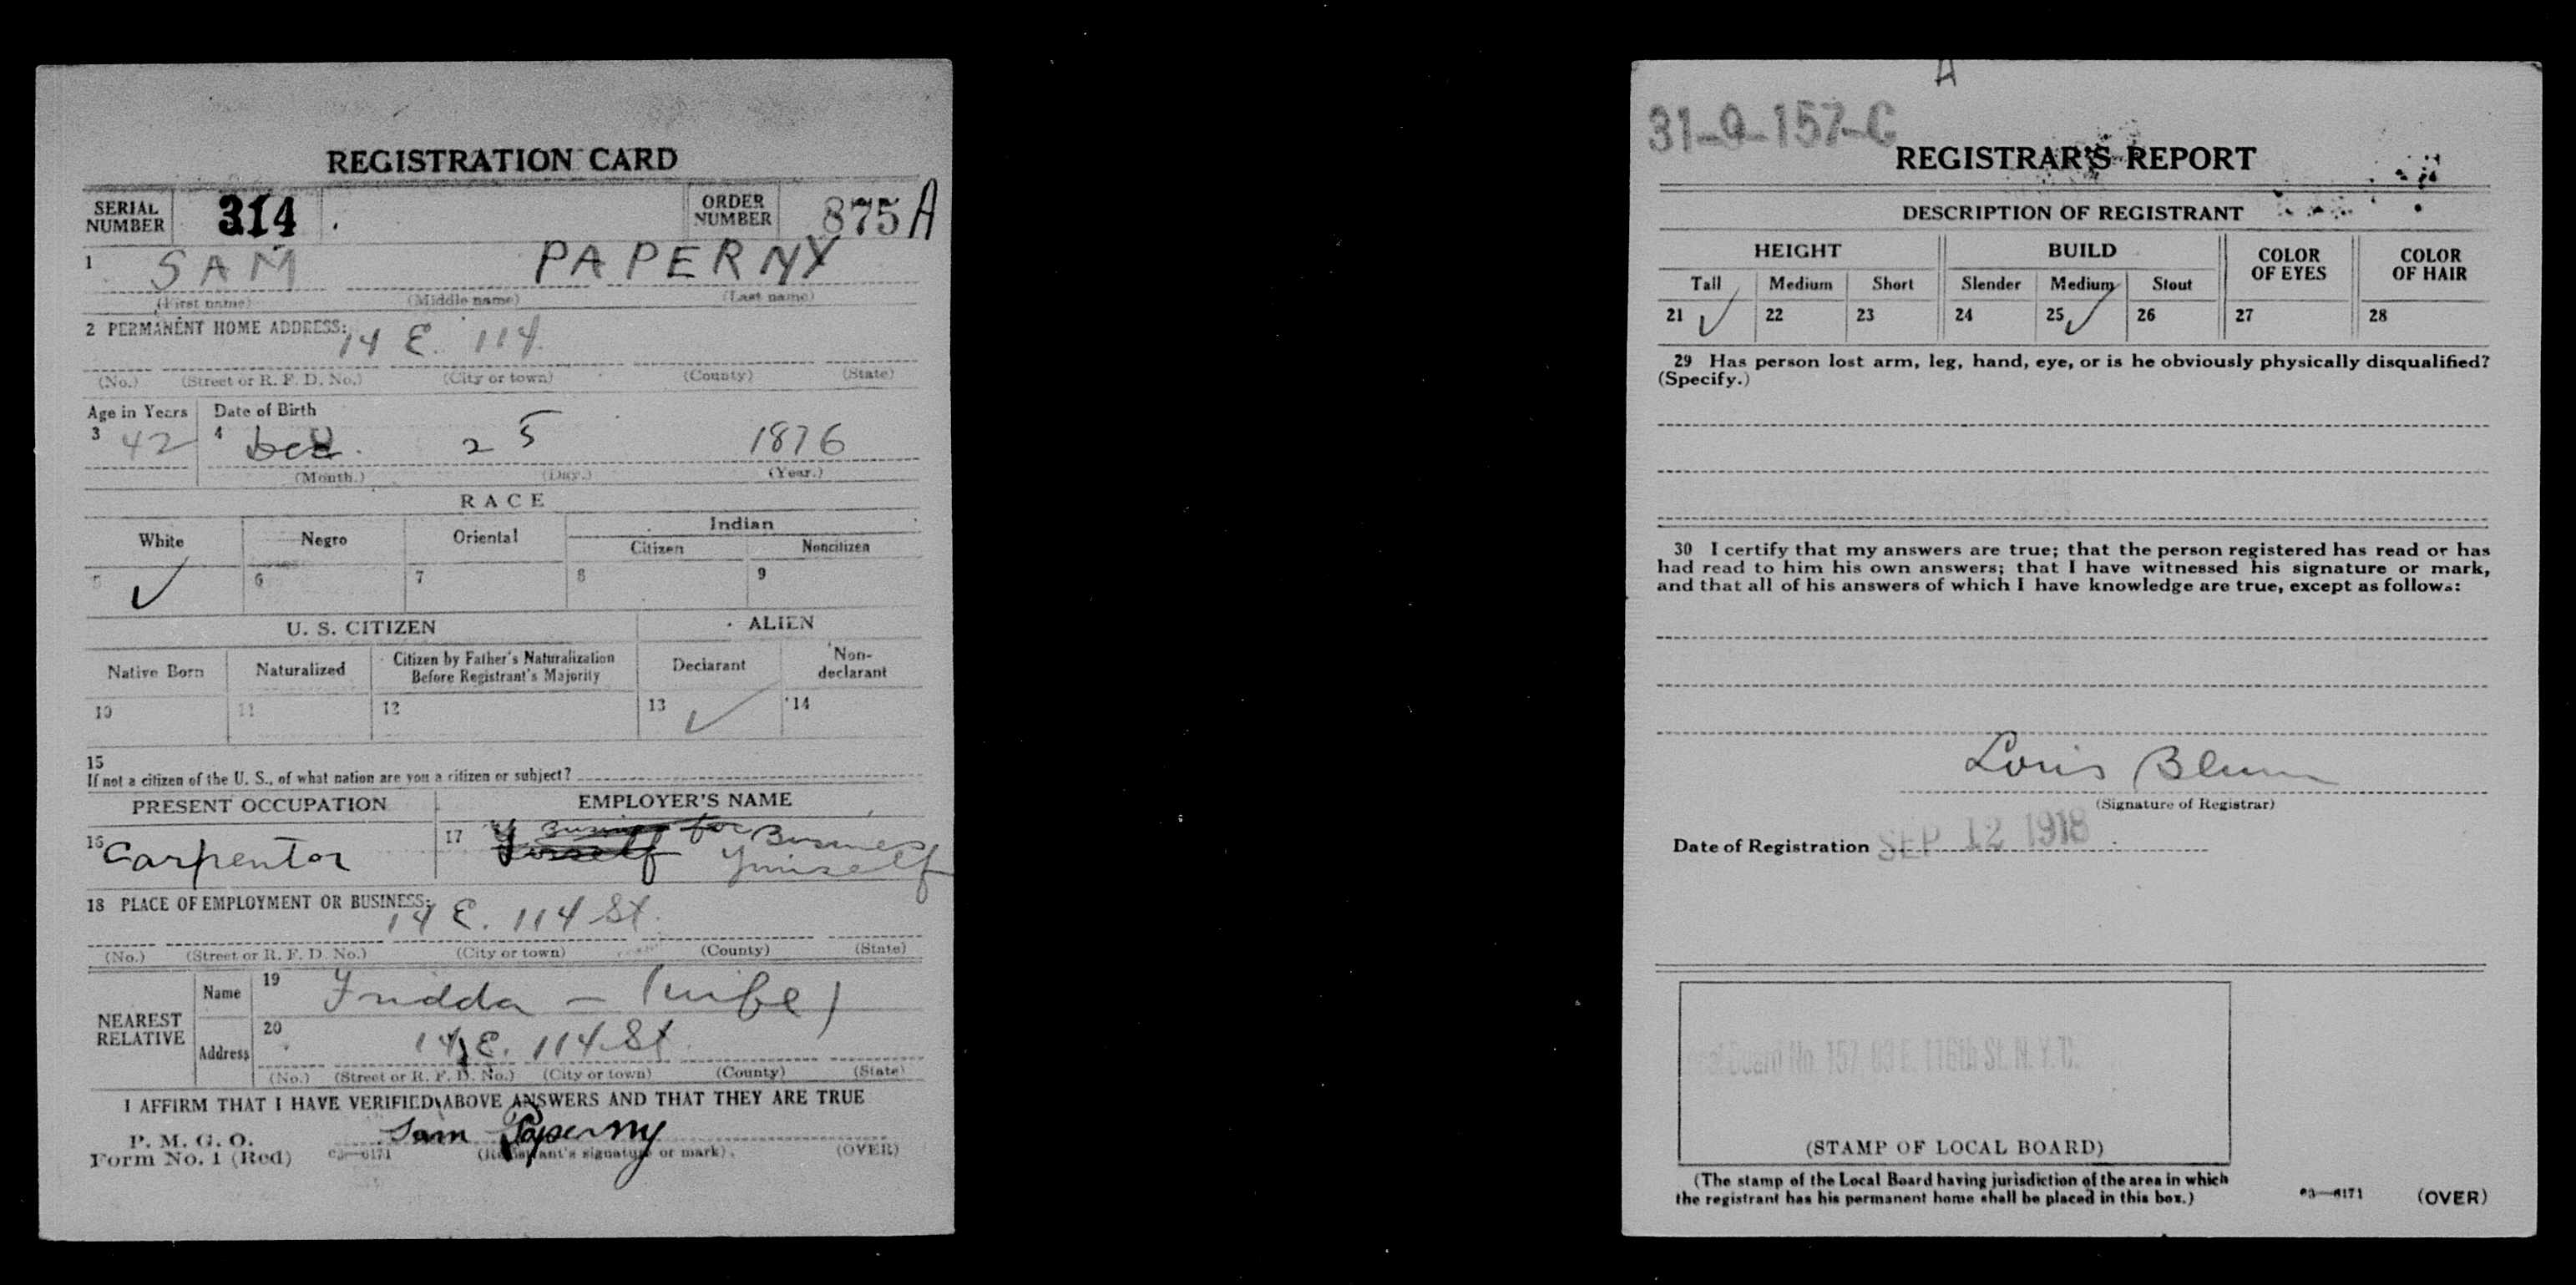 REGISTRATION CARD
SERIAL NUMBER 314 ORDER NUMBER 875 A
1 SAM PAPERNY
(First name) (Middle name) (Last name)
2 PERMANENT HOME ADDRESS: 14 E. 114
(No.) (Street or R. F. D. No.) (City or town) (County) (State)
Age in Years Date of Birth
3 42 4 Dec. 25 1876
(Month.) (Day.) (Year.)
RACE
White Negro Oriental Indian
Citizen Noncitizen
5 ✓ 6 7 8 9
U. S. CITIZEN ALIEN
Native Born Naturalized Citizen by Father's Naturalization Before Registrant's Majority Declarant Non-declarant
10 11 12 13 ✓ 14
15
If not a citizen of the U. S., of what nation are you a citizen or subject?
PRESENT OCCUPATION EMPLOYER'S NAME
16 Carpentor 17 for Business
18 PLACE OF EMPLOYMENT OR BUSINESS: 14 E. 114 St.
(No.) (Street or R. F. D. No.) (City or town) (County) (State)
NEAREST RELATIVE
Name 19 Fridda - (wife)
Address 20 14 E. 114 St
(No.) (Street or R. F. D. No.) (City or town) (County) (State)
I AFFIRM THAT I HAVE VERIFIED ABOVE ANSWERS AND THAT THEY ARE TRUE
P. M. G. O. Sam Paperny
Form No. 1 (Red) 03—6171 (Registrant's signature or mark) (OVER)
A
31-9-157-C
REGISTRAR'S REPORT
DESCRIPTION OF REGISTRANT
HEIGHT BUILD COLOR OF EYES COLOR OF HAIR
Tall Medium Short Slender Medium Stout
21 ✓ 22 23 24 25 ✓ 26 27 28
29 Has person lost arm, leg, hand, eye, or is he obviously physically disqualified?
(Specify.)
30 I certify that my answers are true; that the person registered has read or has
had read to him his own answers; that I have witnessed his signature or mark,
and that all of his answers of which I have knowledge are true, except as follows:
Louis Blum
(Signature of Registrar)
Date of Registration SEP 12 1918
Board No. 157, 83 E. 116th St. N. Y. C.
(STAMP OF LOCAL BOARD)
(The stamp of the Local Board having jurisdiction of the area in which
the registrant has his permanent home shall be placed in this box.)
03—6171 (OVER)